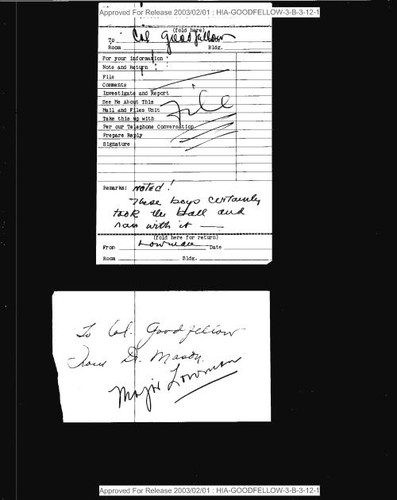 Approved For Release 2003/02/01 : HIA-GOODFELLOW-3-B-3-12-1
(fold here)
To Col Goodfellow
Room Bldg.
For your information
Note and Return
File
Comments
Investigate and Report
See Me About This
Mail and Files Unit
Take this up with
Per our Telephone Conversation
Prepare Reply
Signature
File
Remarks: Noted!
These boys certainly
took the ball and
ran with it —
(fold here for return)
From Lowman Date
Room Bldg.
To Col. Goodfellow
From Dr. Mason.
Major Lowman
Approved For Release 2003/02/01 : HIA-GOODFELLOW-3-B-3-12-1